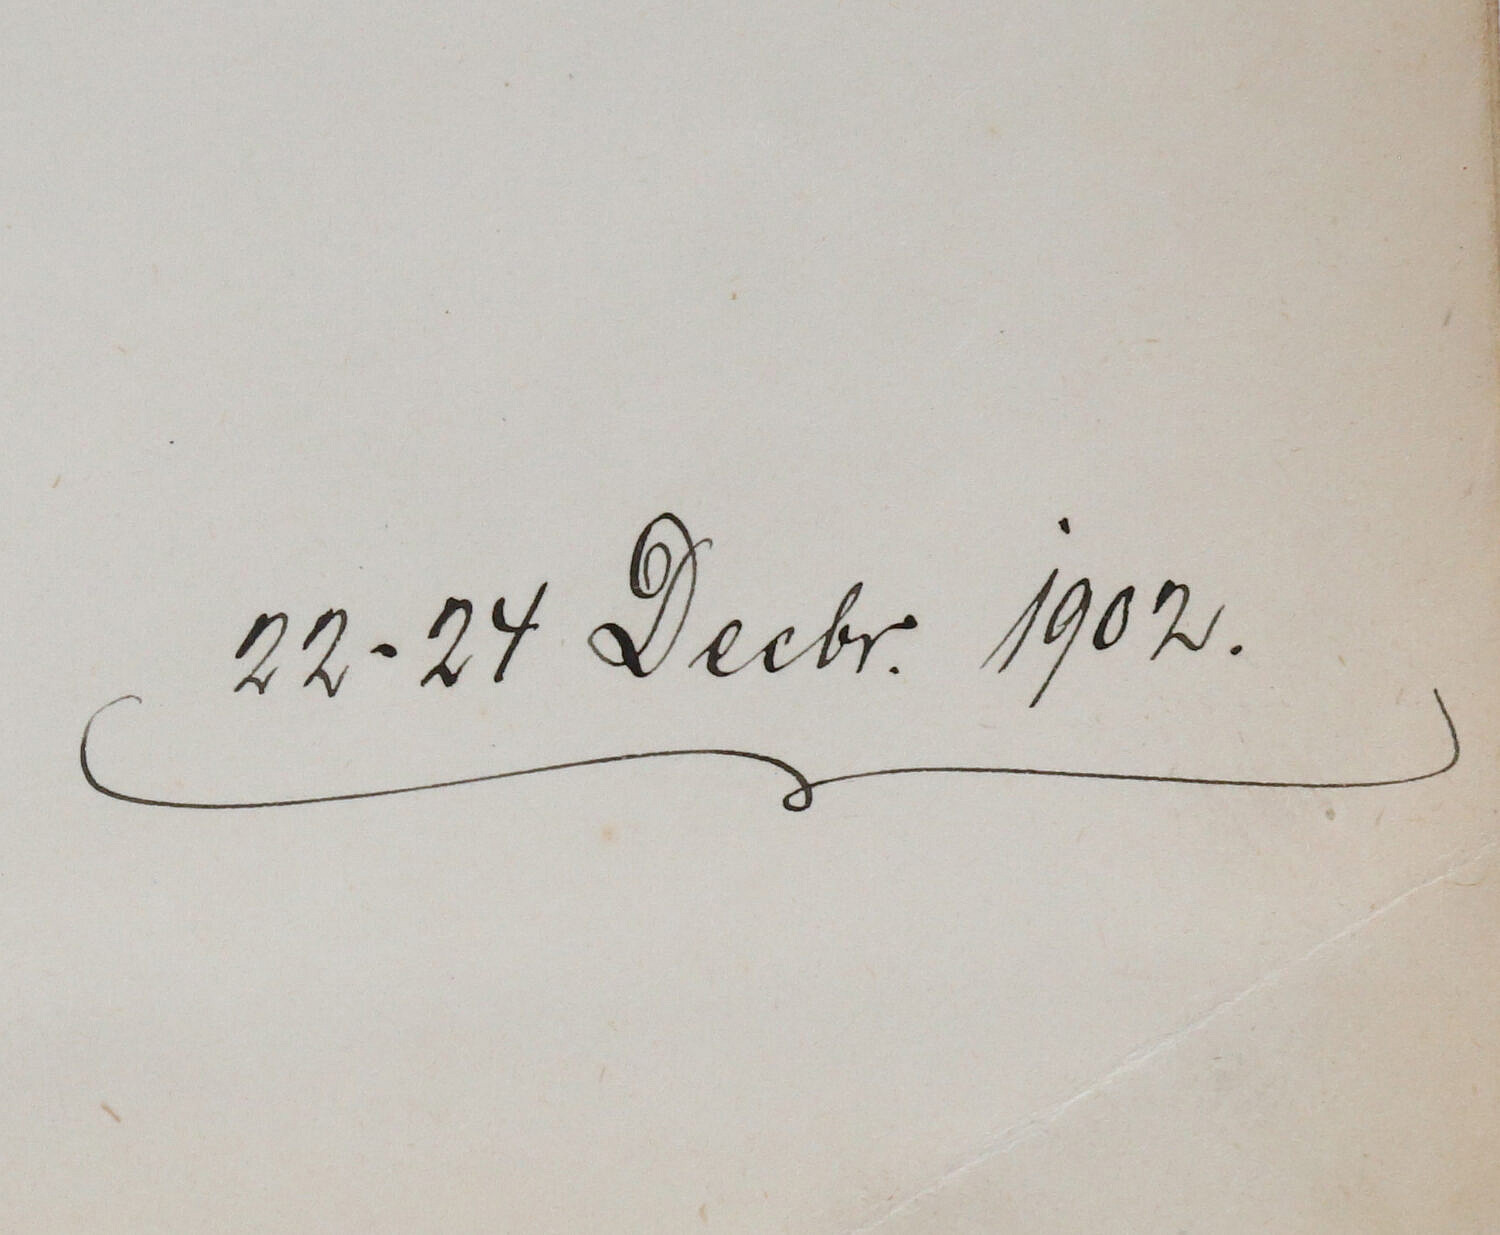 22-24 Decbr. 1902.